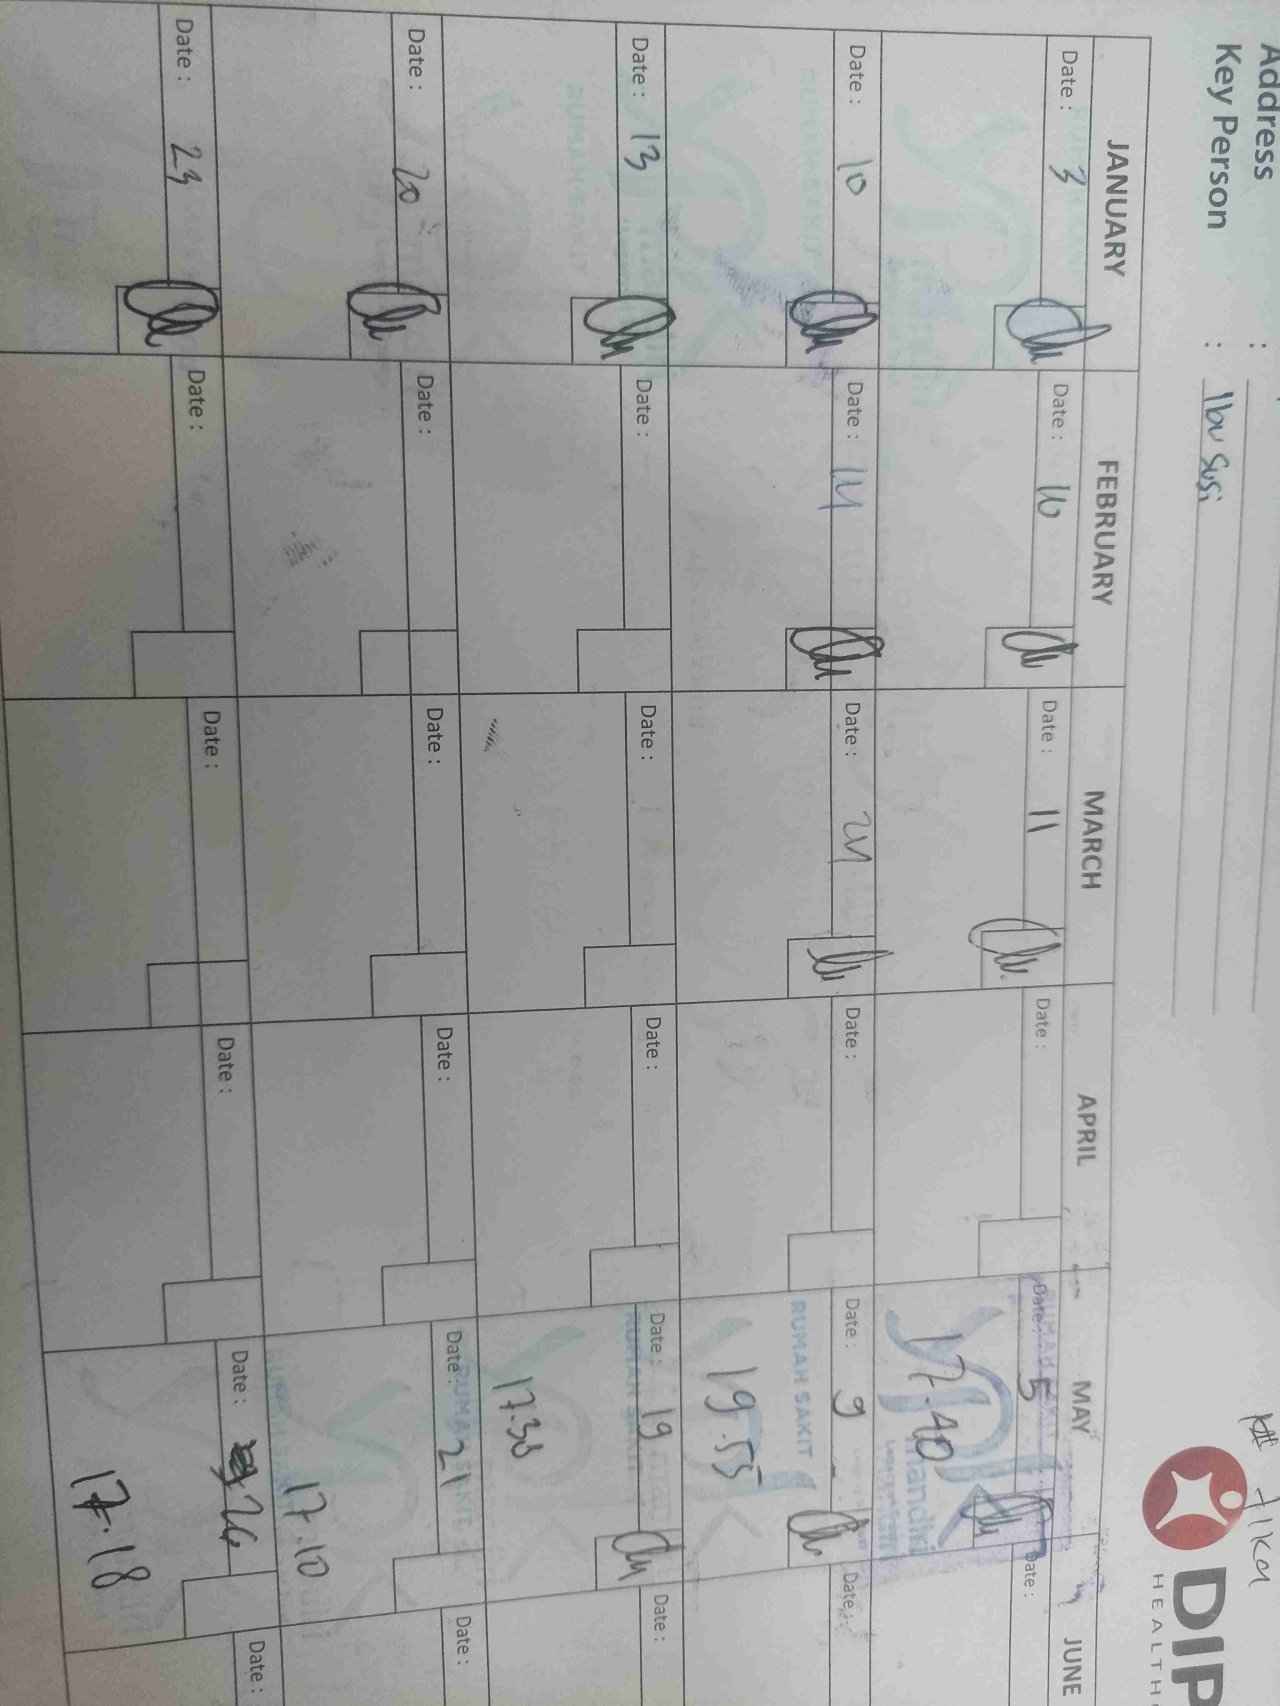 Address :
Key Person : Ibu Susi
Tika
DIP
HEALTH
JANUARY FEBRUARY MARCH APRIL MAY JUNE
Date : 3 Date : 10 Date : 11 Date : Date : 5 Date :
17.40
Mandiri
Date : 10 Date : 14 Date : 24 Date : Date : 9 Date :
19.55
RUMAH SAKIT
Date : 13 Date : Date : Date : Date : 19 Date :
17.30
RUMAH SAKIT
Date : 20 Date : Date : Date : Date : 21 Date :
17.10
Date : 23 Date : Date : Date : Date : 26 Date :
17.18